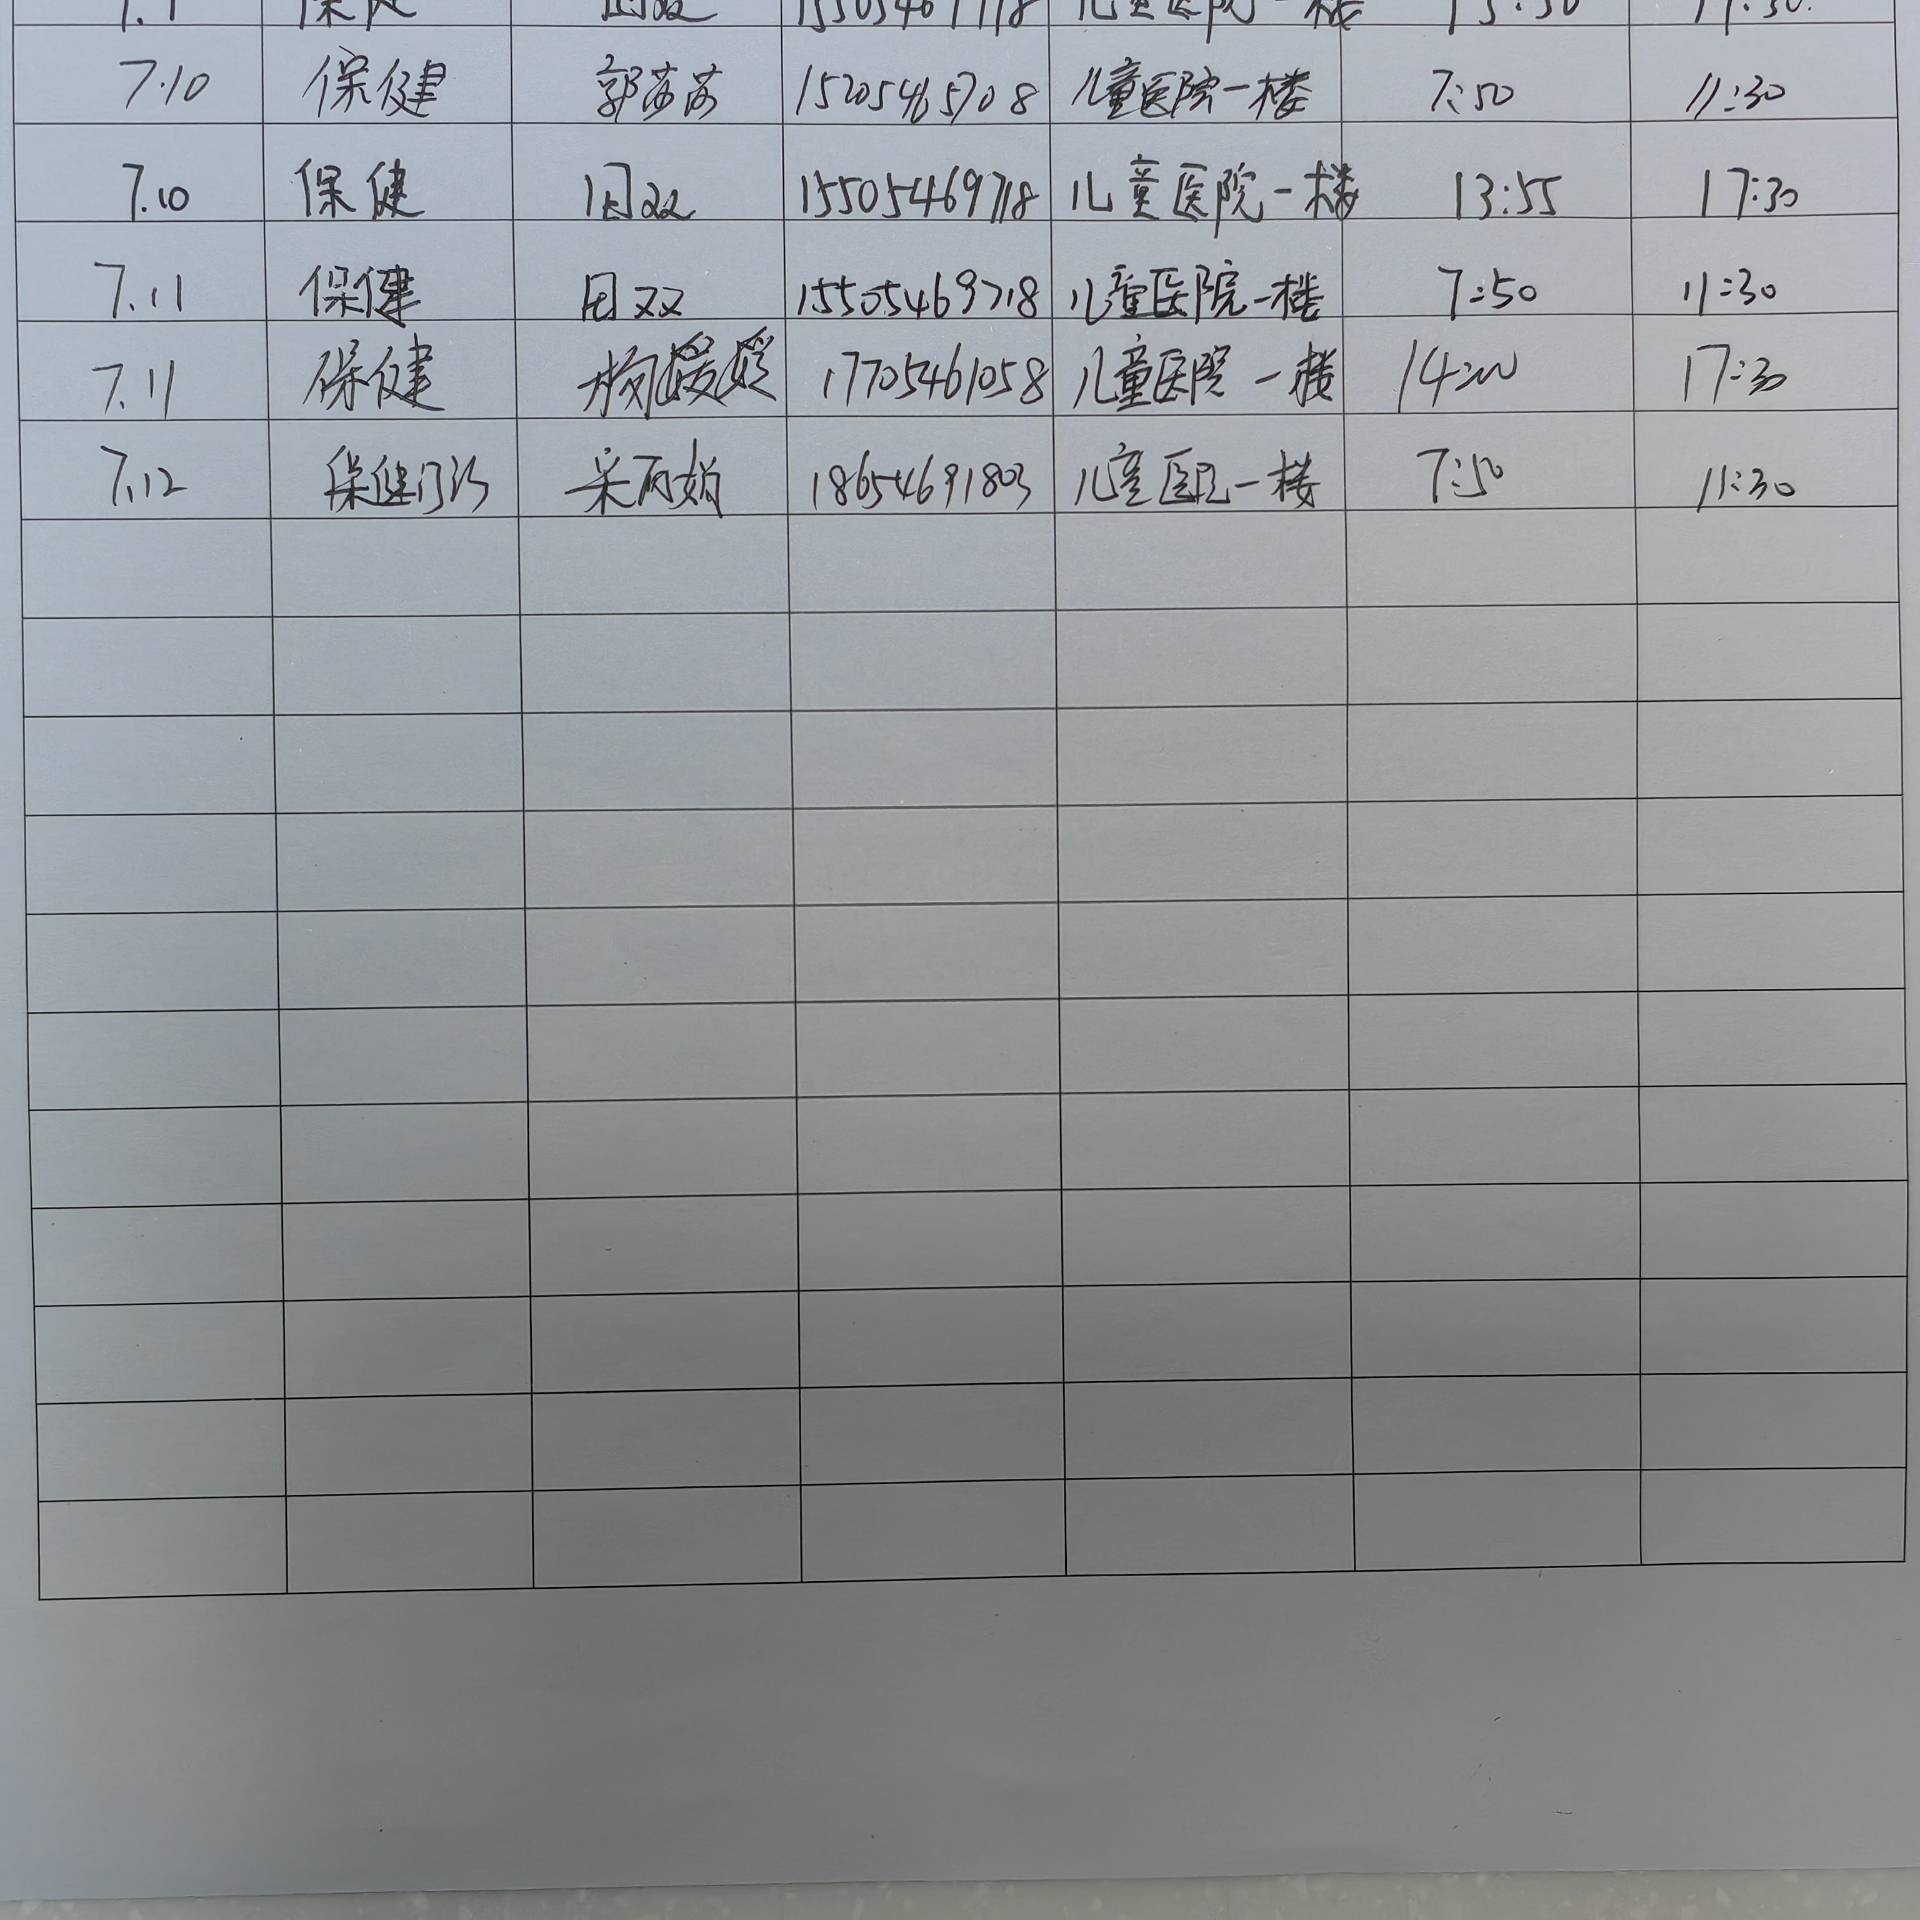 7.10 保健 郭莎莎 15205465708 儿童医院一楼 7:50 11:30
7.10 保健 田双 15505469718 儿童医院一楼 13:55 17:30
7.11 保健 田双 15505469718 儿童医院一楼 7:50 11:30
7.11 保健 17705461058 儿童医院一楼 14:00 17:30
7.12 保健门诊 18654691803 儿童医院一楼 7:50 11:30